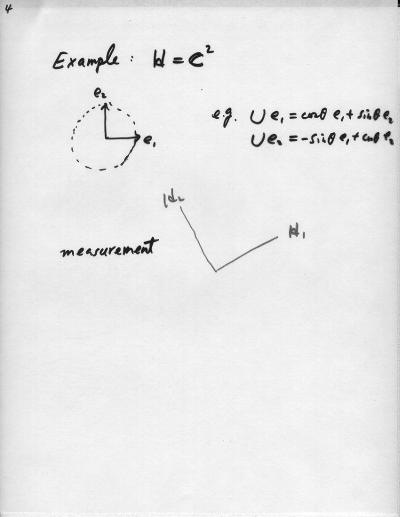 4
Example: ℍ = ℂ²
e₂
e₁
e.g. U e₁ = cosθ e₁ + sinθ e₂
U e₂ = -sinθ e₁ + cosθ e₂
ℍ₂
ℍ₁
measurement